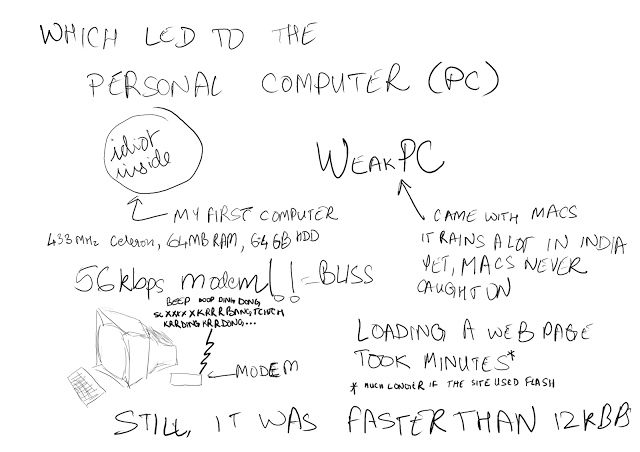 WHICH LED TO THE
PERSONAL COMPUTER (PC)
idiot
inside
WEAKPC
MY FIRST COMPUTER
433 MHz Celeron, 64MB RAM, 64GB HDD
CAME WITH MACS
IT RAINS A LOT IN INDIA
YET, MACS NEVER
CAUGHT ON
56kbps modem!! = BLISS
BEEP BOOP DING DONG,
KRRDING KRRDONG,...
MODEM
LOADING A WEB PAGE
TOOK MINUTES*
* MUCH LONGER IF THE SITE USED FLASH
STILL, IT WAS FASTER THAN 12KBB